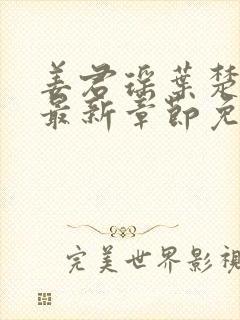 姜君瑶叶楚
最新章节免
完美世界影视